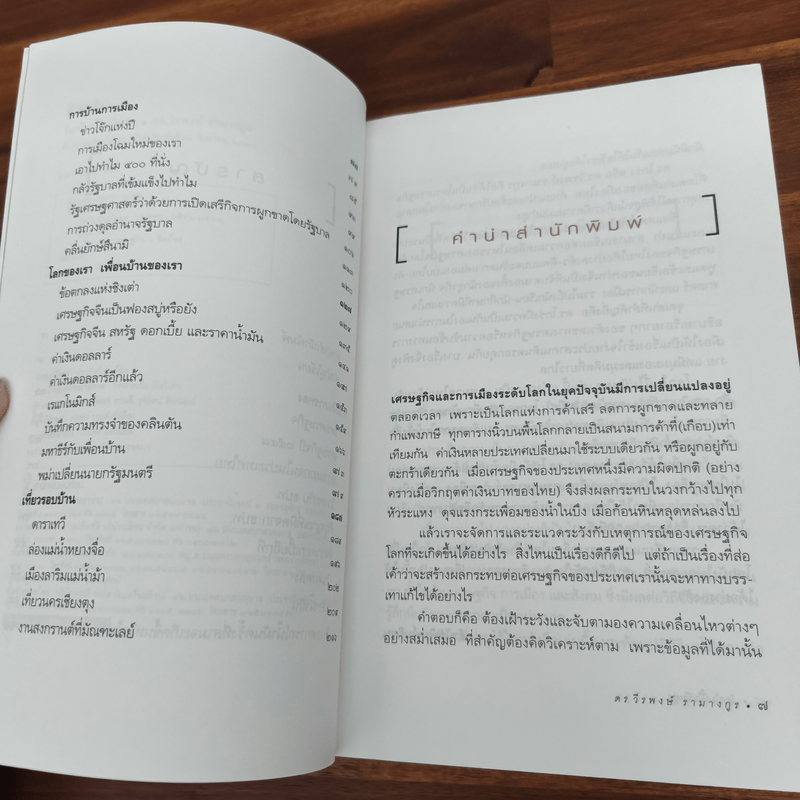 การบ้านการเมือง
ข่าวโจ๊กแห่งปี
การเมืองโฉมใหม่ของเรา
เอาไปทำไม ๔๐๐ ที่นั่ง
กลัวรัฐบาลที่เข้มแข็งไปทำไม
รัฐเศรษฐศาสตร์ว่าด้วยการเปิดเสรีกิจการผูกขาดโดยรัฐบาล
การถ่วงดุลอำนาจรัฐบาล
คลื่นยักษ์สึนามิ
โลกของเรา เพื่อนบ้านของเรา
ข้อตกลงแห่งชิงเต่า
เศรษฐกิจจีนเป็นฟองสบู่หรือยัง
เศรษฐกิจจีน สหรัฐ ดอกเบี้ย และราคาน้ำมัน
ค่าเงินดอลลาร์
ค่าเงินดอลลาร์อีกแล้ว
เรแกโนมิกส์
บันทึกความทรงจำของคลินตัน
มหาธีร์กับเพื่อนบ้าน
พม่าเปลี่ยนนายกรัฐมนตรี
เที่ยวรอบบ้าน ๑๘๗
ดาราเทวี
ล่องแม่น้ำหยางจื่อ
เมืองลาริมแม่น้ำม้า ๒๐๒
เที่ยวนครเชียงตุง
งานสงกรานต์ที่มัณฑะเลย์
คำนำสำนักพิมพ์
เศรษฐกิจและการเมืองระดับโลกในยุคปัจจุบันมีการเปลี่ยนแปลงอยู่
ตลอดเวลา เพราะเป็นโลกแห่งการค้าเสรี ลดการผูกขาดและทลาย
กำแพงภาษี ทุกตารางนิ้วบนพื้นโลกกลายเป็นสนามการค้าที่(เกือบ)เท่า
เทียมกัน ค่าเงินหลายประเทศเปลี่ยนมาใช้ระบบเดียวกัน หรือผูกอยู่กับ
ตะกร้าเดียวกัน เมื่อเศรษฐกิจของประเทศหนึ่งมีความผิดปกติ (อย่าง
คราวเมื่อวิกฤตค่าเงินบาทของไทย) จึงส่งผลกระทบในวงกว้างไปทุก
หัวระแหง ดุจแรงกระเพื่อมของน้ำในบึง เมื่อก้อนหินหลุดหล่นลงไป
แล้วเราจะจัดการและระแวดระวังกับเหตุการณ์ของเศรษฐกิจ
โลกที่จะเกิดขึ้นได้อย่างไร สิ่งไหนเป็นเรื่องดีก็ดีไป แต่ถ้าเป็นเรื่องที่ส่อ
เค้าว่าจะสร้างผลกระทบต่อเศรษฐกิจของประเทศเรานั้นจะหาทางบรร-
เทาแก้ไขได้อย่างไร
คำตอบก็คือ ต้องเฝ้าระวังและจับตามองความเคลื่อนไหวต่างๆ
อย่างสม่ำเสมอ ที่สำคัญต้องคิดวิเคราะห์ตาม เพราะข้อมูลที่ได้มานั้น
ดร.วีรพงษ์ รามางกูร • ๗